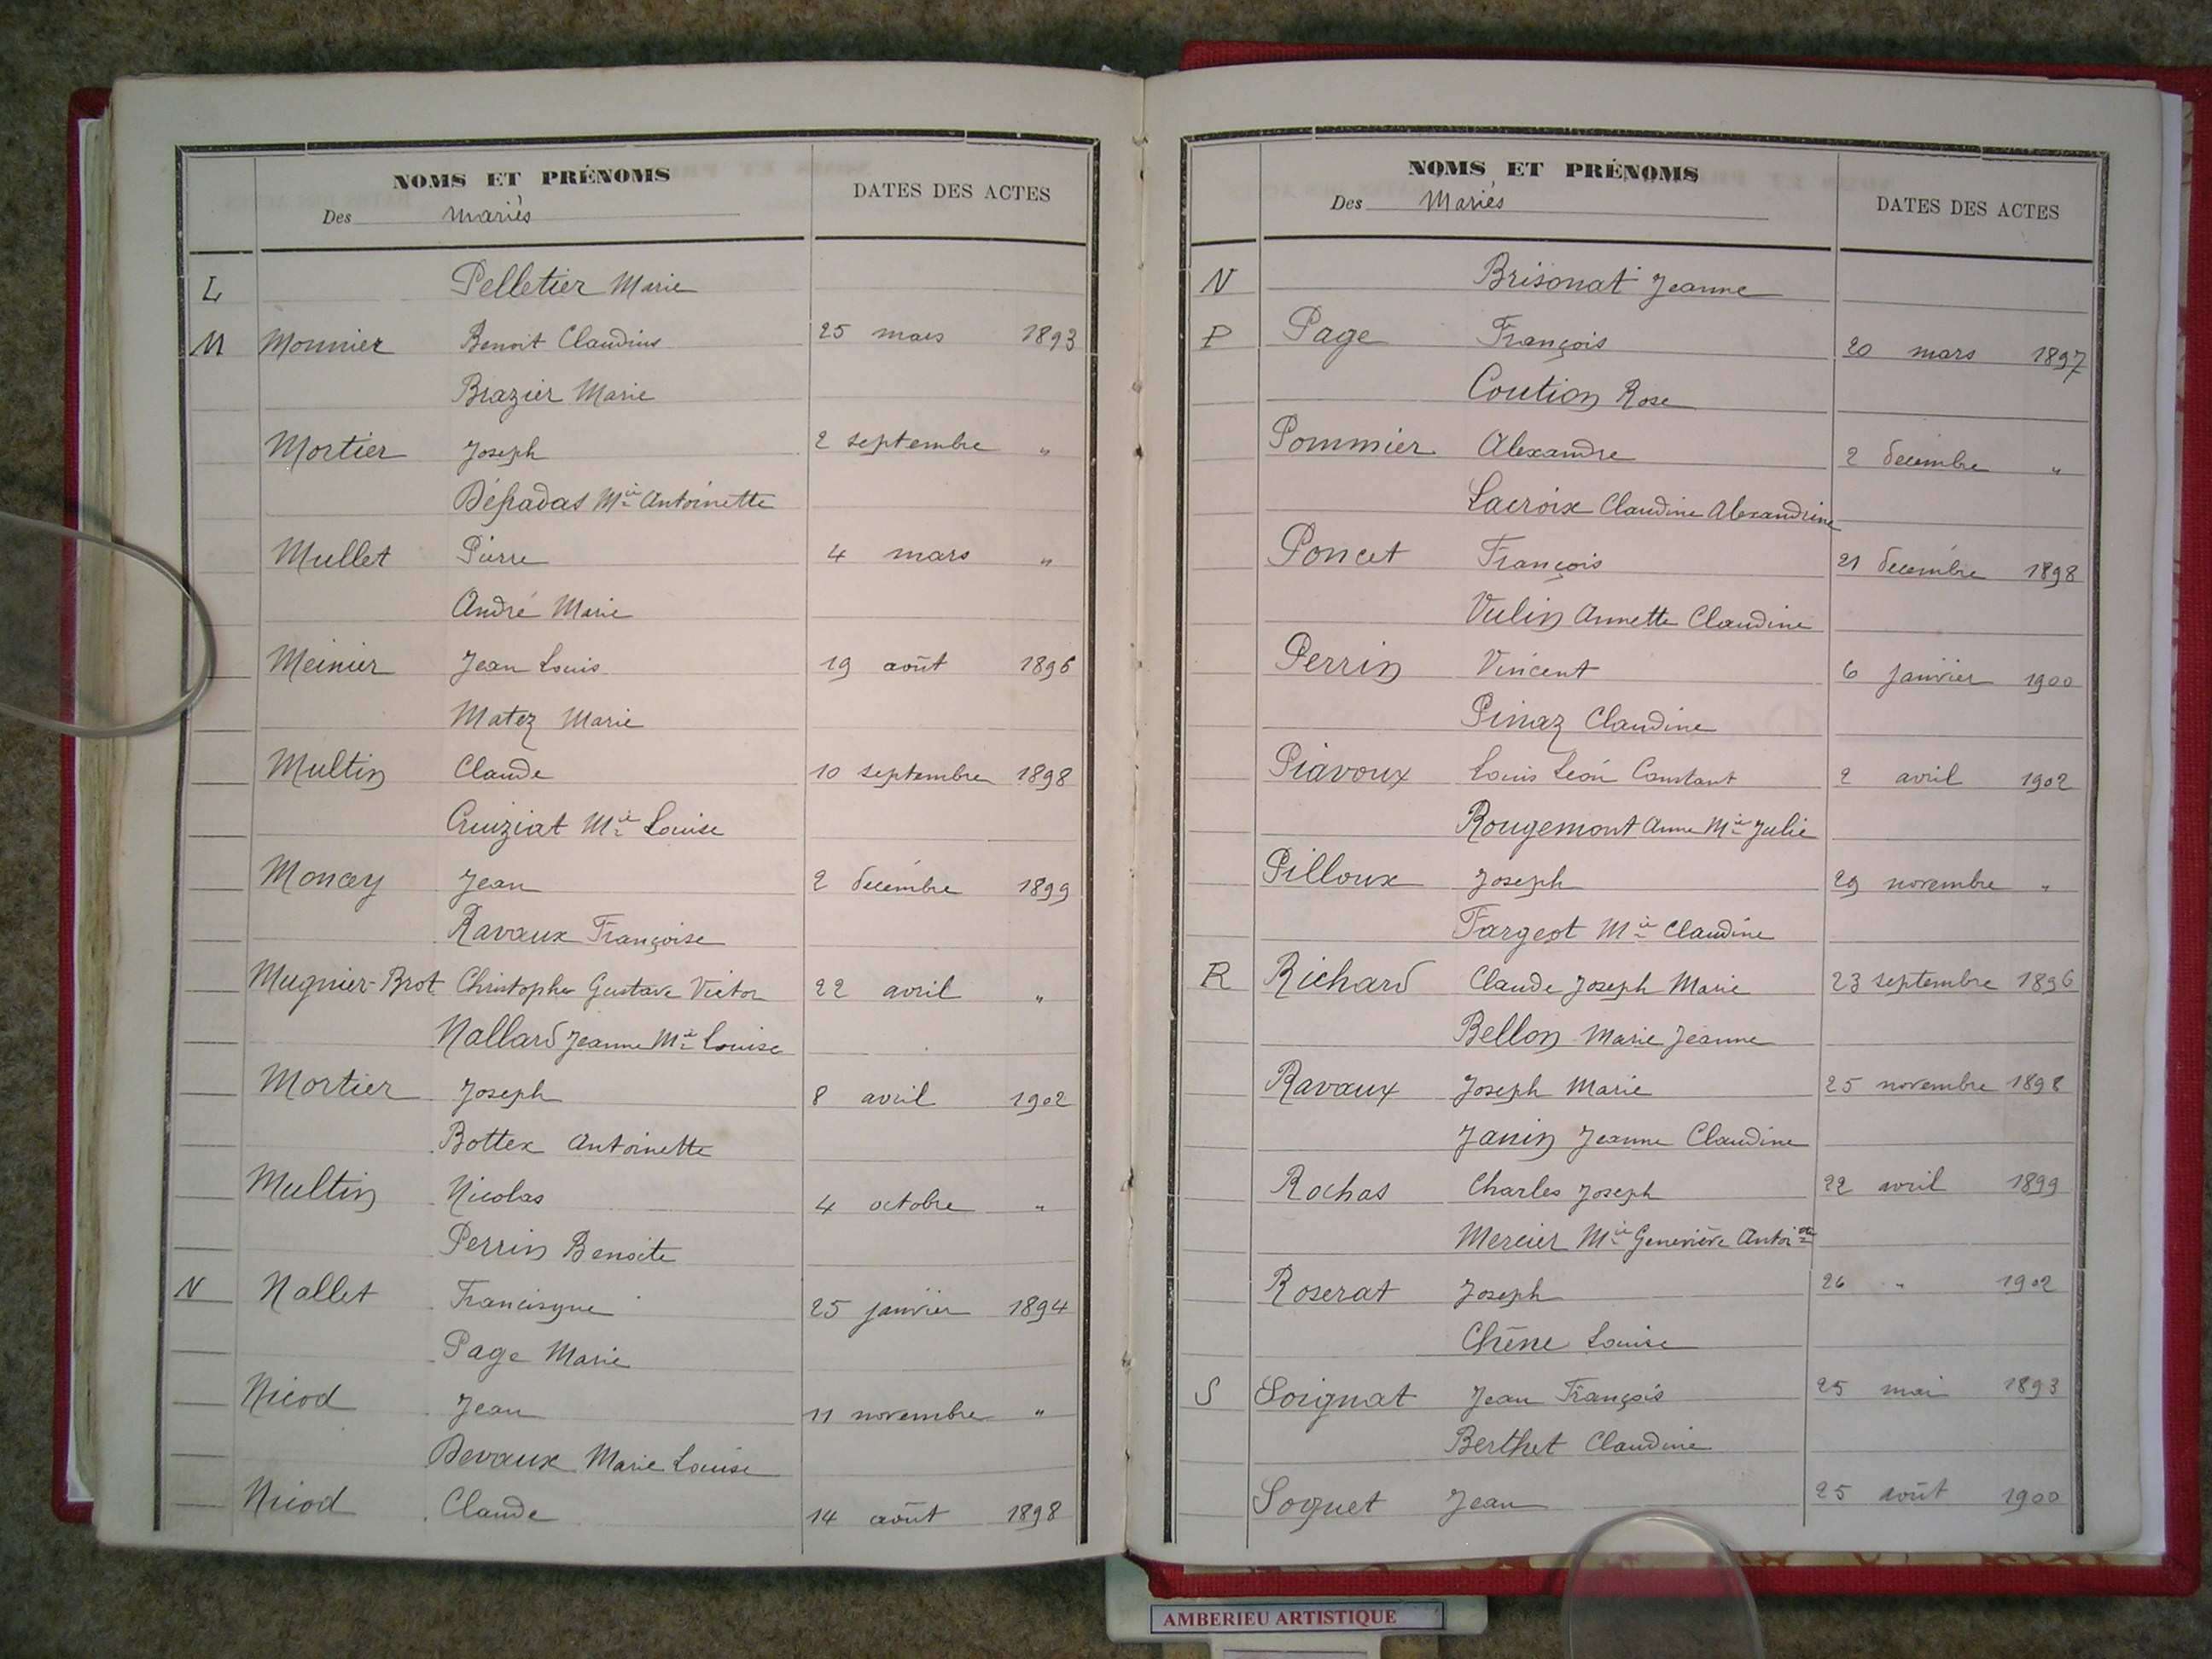 NOMS ET PRÉNOMS
Des mariés
DATES DES ACTES
L Pelletier Marie
M Monnier Benoit Claudius 25 mars 1893
Brazier Marie
Mortier Joseph 2 septembre "
Antoinette
Mullet Pierre 4 mars "
André Marie
Meinier Jean Louis 19 août 1896
Matez Marie
Multin Claude 10 septembre 1898
Cruiziat Mie Louise
Moncey Jean 2 décembre 1899
Ravaux Françoise
Mugnier-Brot Christophe Gustave Victor 22 avril "
Nallard Jeanne Mie Louise
Mortier Joseph 8 avril 1902
Bottex Antoinette
Multin Nicolas 4 octobre "
Perrin Benoite
N Nallet Francisque 25 janvier 1894
Page Marie
Nicod Jean 11 novembre "
Devaux Marie Louise
Nicod Claude 14 août 1898
NOMS ET PRÉNOMS
Des Mariés
DATES DES ACTES
N Brisonat Jeanne
P Page François 20 mars 1897
Coution Rose
Pommier Alexandre 2 décembre "
Lacroix Claudine Alexandrine
Poncet François 21 décembre 1898
Vulin Annette Claudine
Perrin Vincent 6 janvier 1900
Pinaz Claudine
Piavoux Louis Léon Constant 2 avril 1902
Rougemont Anne Mie Julie
Pilloux Joseph 29 novembre "
Fargeot Mie Claudine
R Richard Claude Joseph Marie 23 septembre 1896
Bellon Marie Jeanne
Ravaux Joseph Marie 25 novembre 1898
Janin Jeanne Claudine
Rochas Charles Joseph 22 avril 1899
Mercier Mie Geneviève Antoitte
Roserat Joseph 26 " 1902
Chêne Louise
S Soignat Jean François 25 mai 1893
Berthet Claudine
Soquet Jean 25 août 1900
AMBERIEU ARTISTIQUE